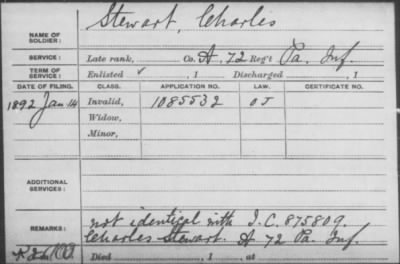 Stewart, Charles
NAME OF SOLDIER:
SERVICE: Late rank, Co. A. 72 Reg't Pa. Inf.
TERM OF SERVICE: Enlisted ✓, 1 Discharged , 1
DATE OF FILING. CLASS. APPLICATION NO. LAW. CERTIFICATE NO.
1892 Jan 14 Invalid, 1085532
Widow,
Minor,
ADDITIONAL SERVICES:
REMARKS: not identical with I.C. 875809.
Charles Stewart. A 72 Pa. Inf.
Died , 1 , at